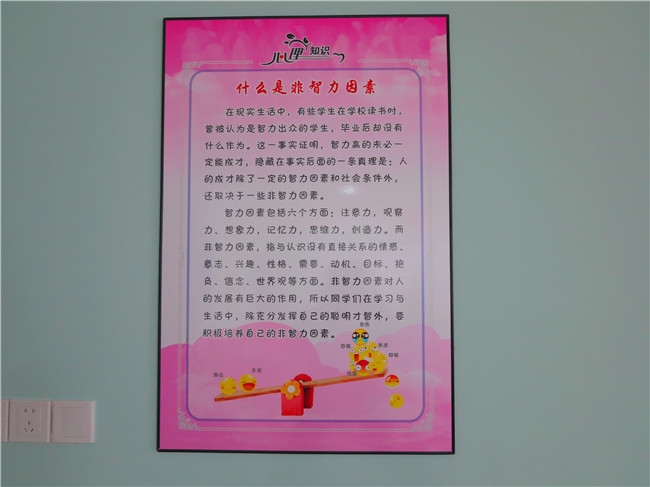 心理知识
什么是非智力因素
在现实生活中，有些学生在学校读书时，
曾被认为是智力出众的学生，毕业后却没有
什么作为。这一事实证明，智力高的未必一
定能成才，隐藏在事实后面的一条真理是：人
的成才除了一定的智力因素和社会条件外，
还取决于一些非智力因素。
智力因素包括六个方面：注意力，观察
力、想象力，记忆力，思维力，创造力。而
非智力因素，指与认识没有直接关系的情感、
意志、兴趣、性格、需要、动机、目标、抱
负、信念、世界观等方面。非智力因素对人
的发展有巨大的作用，所以同学们在学习与
生活中，除充分发挥自己的聪明才智外，要
积极培养自己的非智力因素。
悲伤
焦虑
抑郁